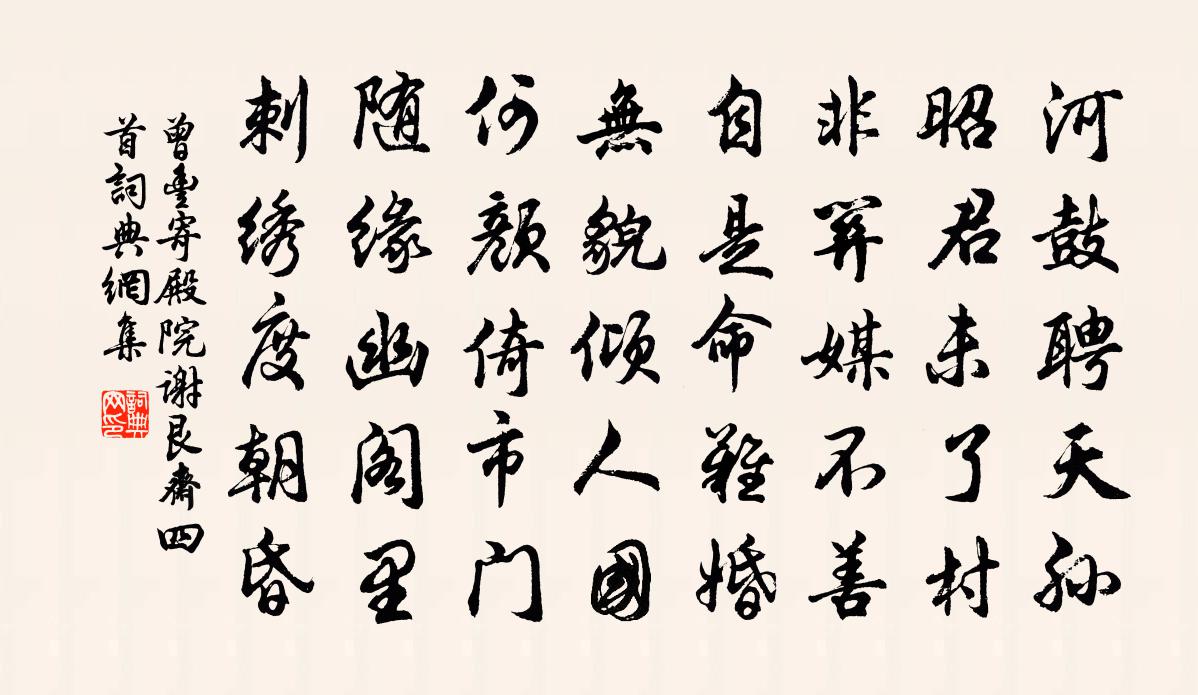 河鼓聘天孙
昭君未了村
非算媒不善
自是命難婚
無貌傾人國
何顏倚市门
随缘幽阁里
刺绣度朝昏
曾豊寄殿院謝艮齋四
首詞典網集
詞典网印